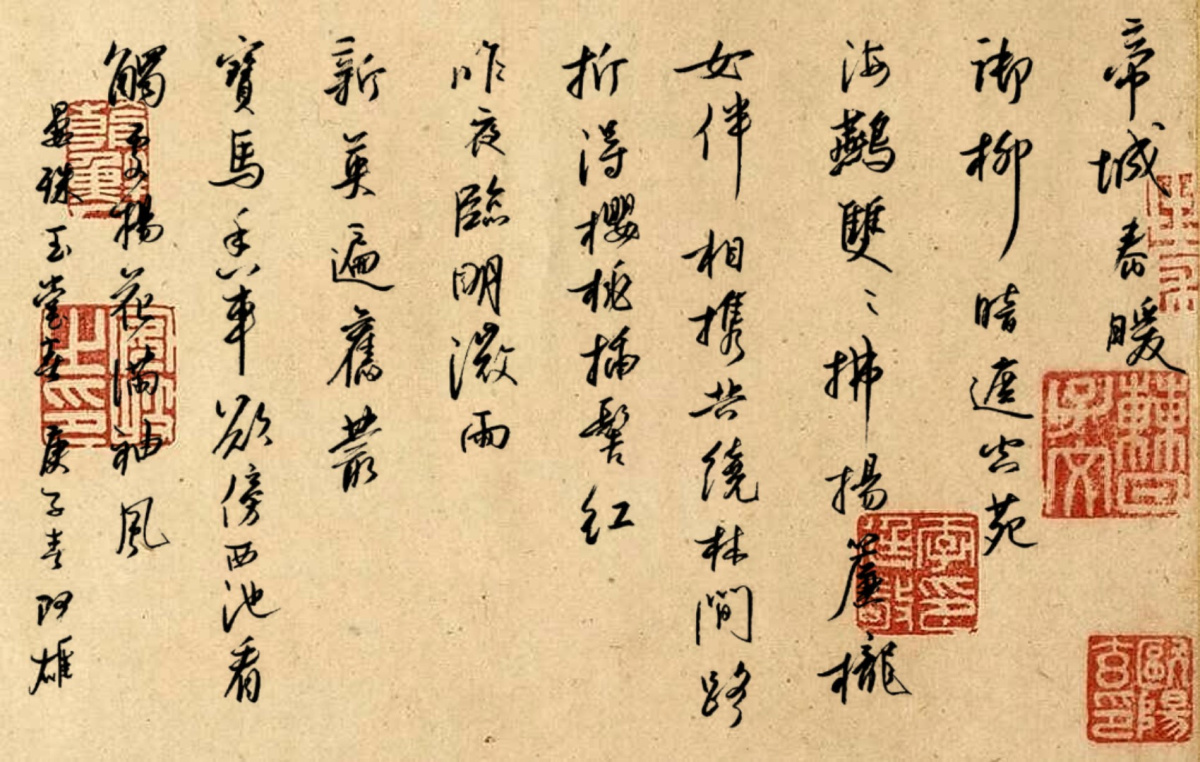 帝城春暖
御柳暗遮空苑
海鷰雙〻拂揚簾櫳
女伴相攜共繞林間路
折得櫻桃插髻紅
昨夜臨明微雨
新英遍舊叢
寶馬香車欲傍西池看
觸處楊花滿袖風
晏殊玉堂春 庚子春阿雄
歐陽玄印